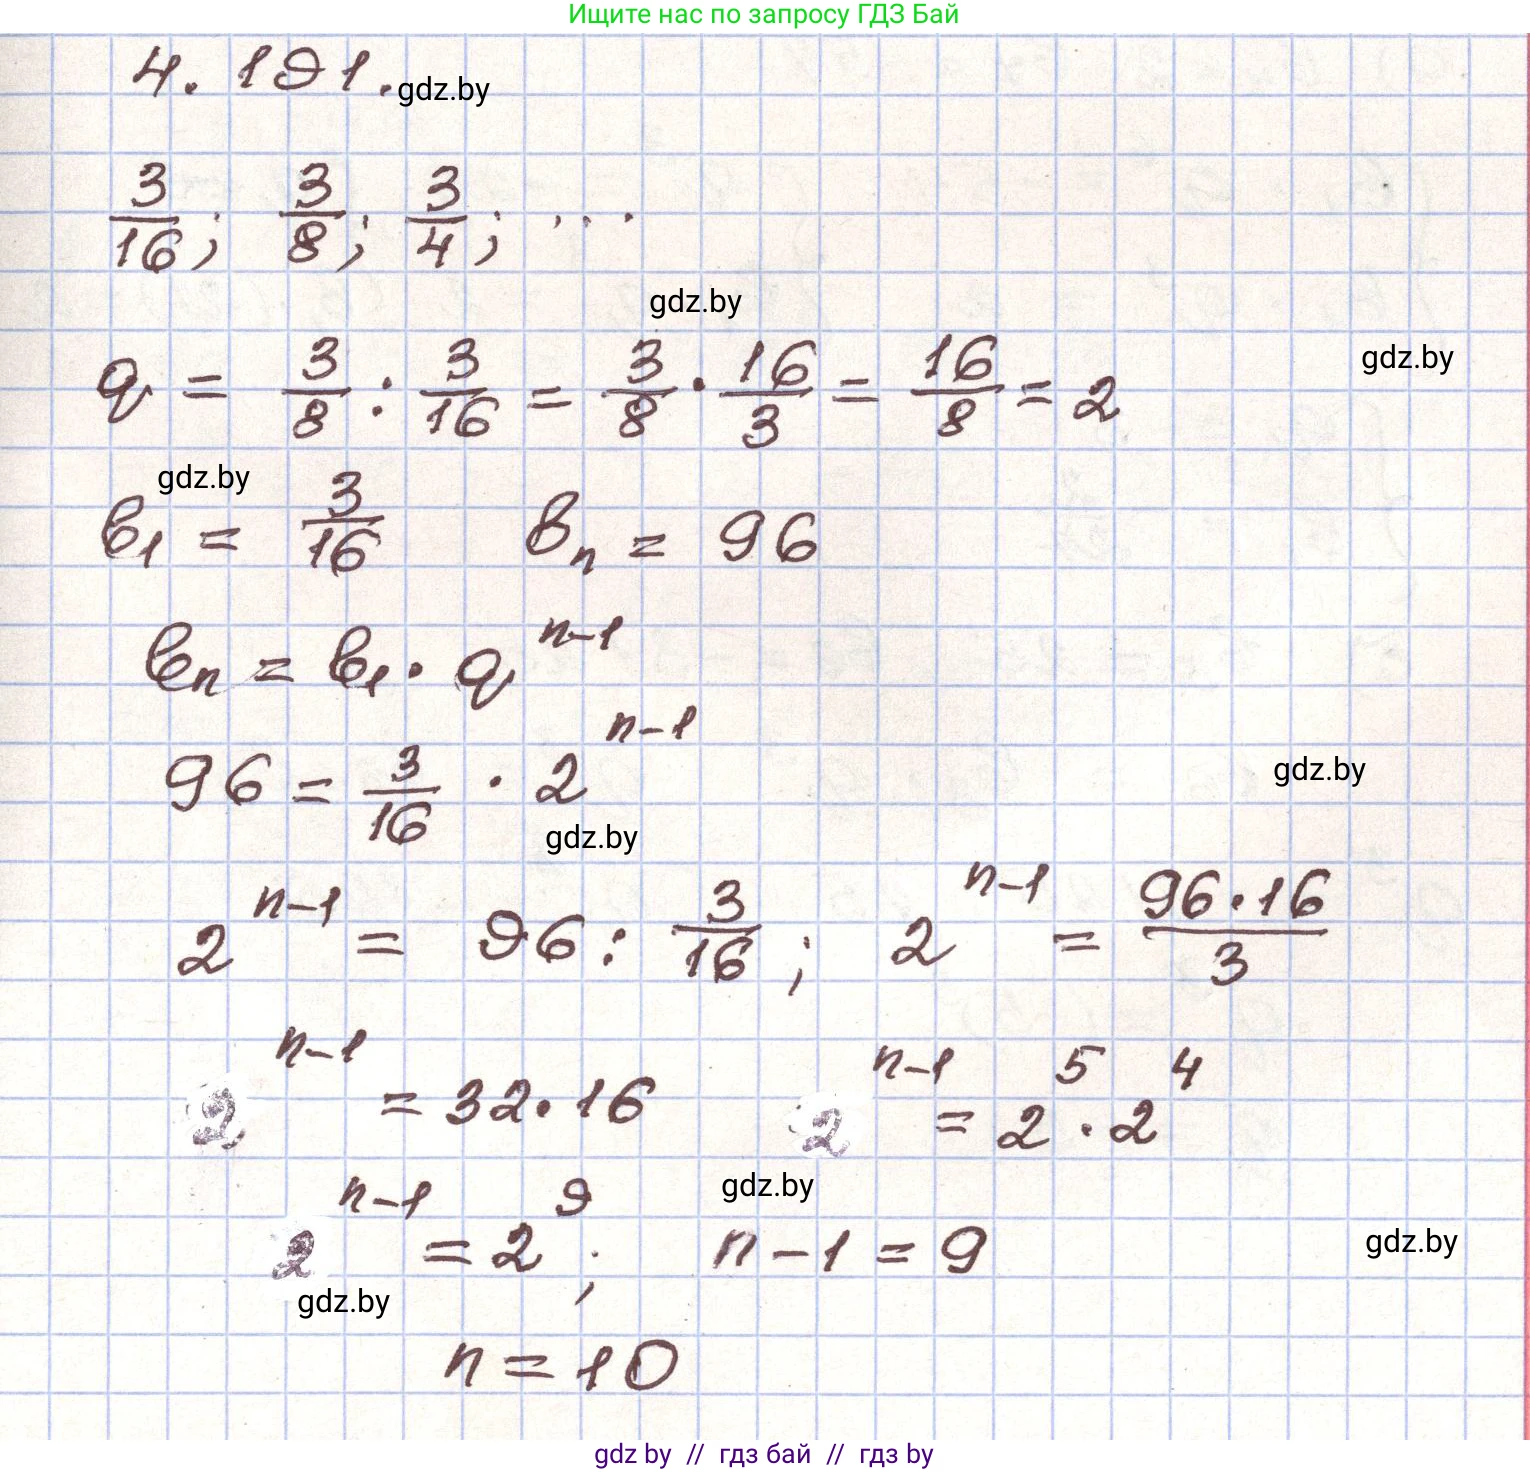 Ищите нас по запросу ГДЗ Бай
4. 191. gdz.by
3/16; 3/8; 3/4; ...
gdz.by
q = 3/8 : 3/16 = 3/8 · 16/3 = 16/8 = 2 gdz.by
gdz.by
b₁ = 3/16 bₙ = 96
bₙ = b₁ · q^(n-1)
96 = 3/16 · 2^(n-1) gdz.by
gdz.by
2^(n-1) = 96 : 3/16; 2^(n-1) = 96·16/3
2^(n-1) = 32·16 2^(n-1) = 2^5 · 2^4
gdz.by
2^(n-1) = 2^9; n - 1 = 9 gdz.by
gdz.by
n = 10
gdz by // гдз бай // гдз by